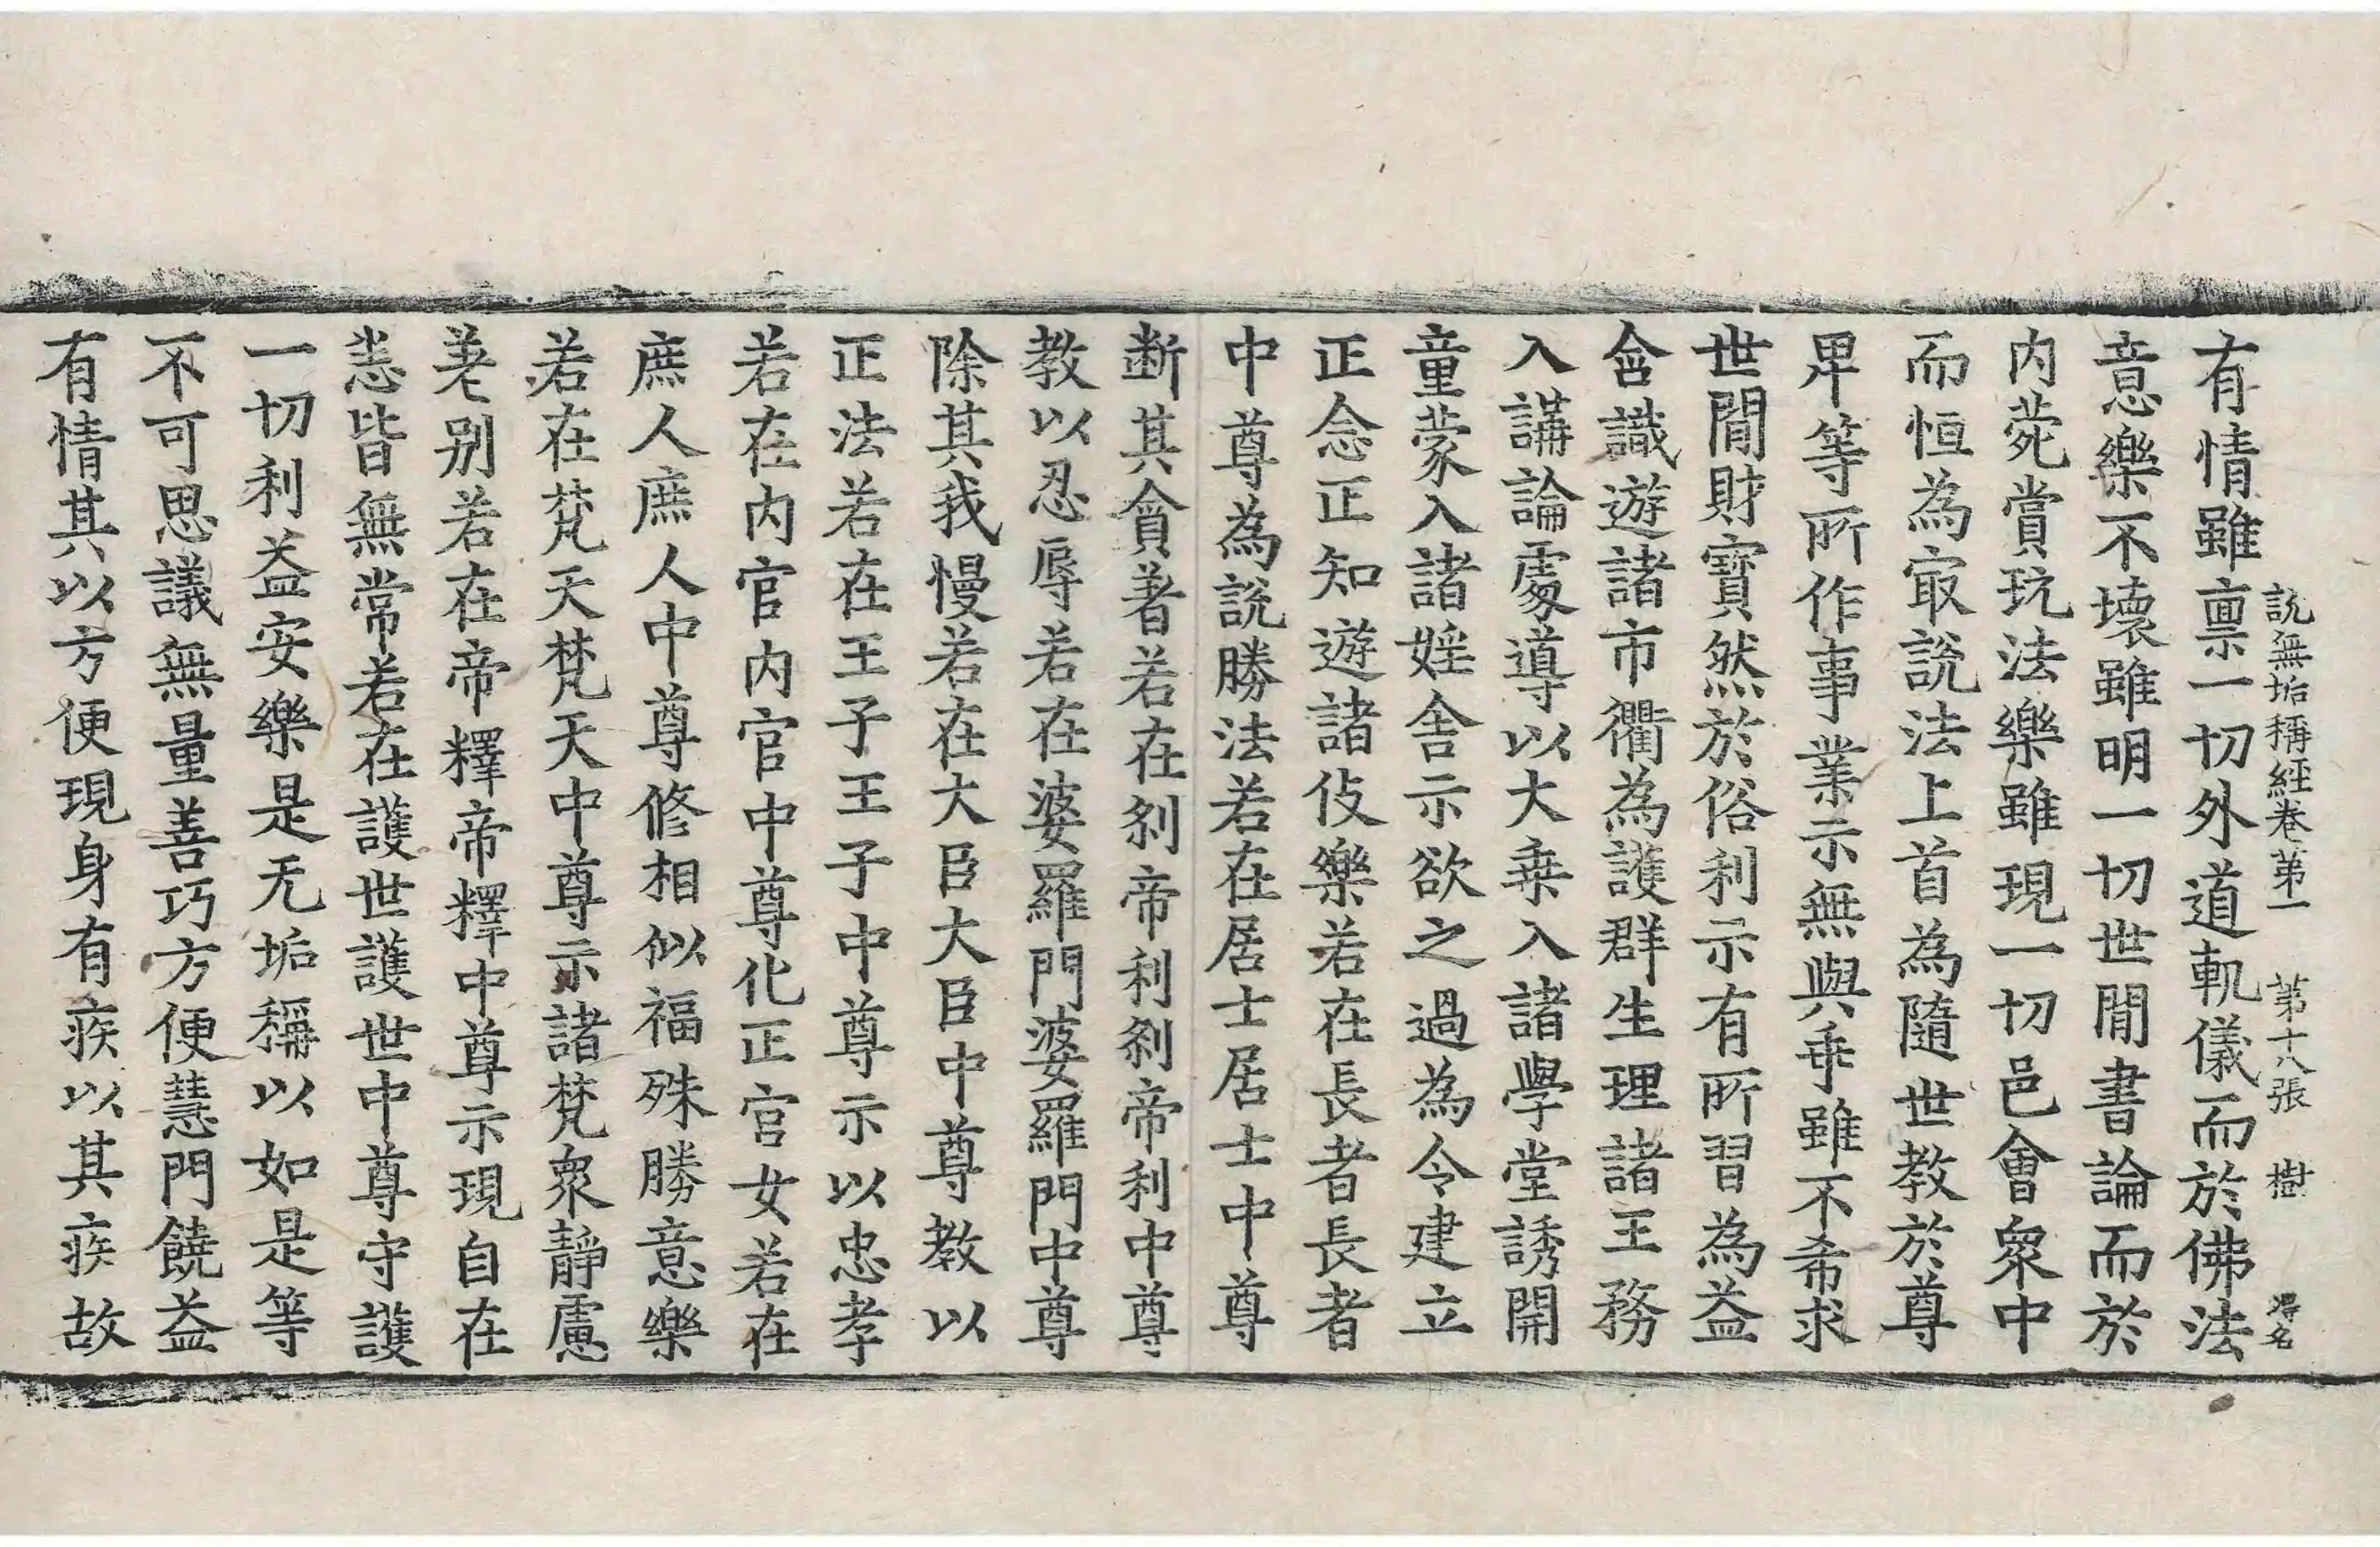 說無垢稱經卷第一 第十八張 樹 得名
有情雖稟一切外道軌儀而於佛法
意樂不壞雖明一切世間書論而於
內苑賞玩法樂雖現一切邑會衆中
而恒為㝡說法上首為隨世教於尊
卑等所作事業示無與乖雖不希求
世間財寶然於俗利示有所習為益
含識遊諸市衢為護群生理諸王務
入講論處導以大乘入諸學堂誘開
童蒙入諸婬舍示欲之過為令建立
正念正知遊諸伎樂若在長者長者
中尊為說勝法若在居士居士中尊
斷其貪著若在剎帝利剎帝利中尊
教以忍辱若在婆羅門婆羅門中尊
除其我慢若在大臣大臣中尊教以
正法若在王子王子中尊示以忠孝
若在內官內官中尊化正宮女若在
庶人庶人中尊修相似福殊勝意樂
若在梵天梵天中尊示諸梵衆靜慮
差別若在帝釋帝釋中尊示現自在
悉皆無常若在護世護世中尊守護
一切利益安樂是无垢稱以如是等
不可思議無量善巧方便慧門饒益
有情其以方便現身有疾以其疾故